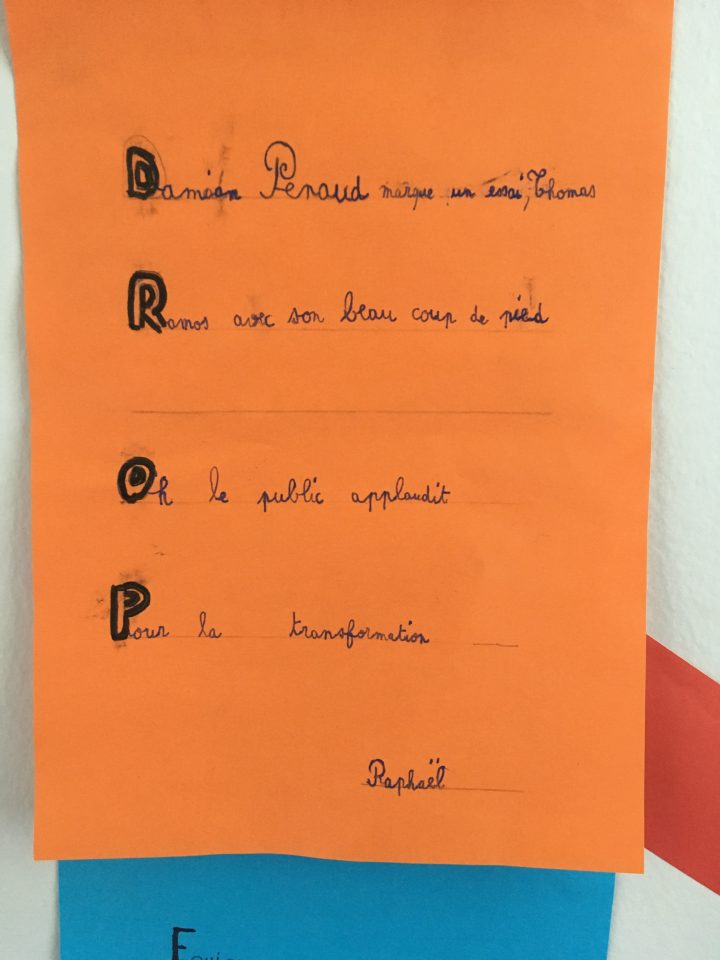 Damian Penaud marque un essai, Thomas
Ramos avec son beau coup de pied
Oh le public applaudit
Pour la transformation
Raphaël